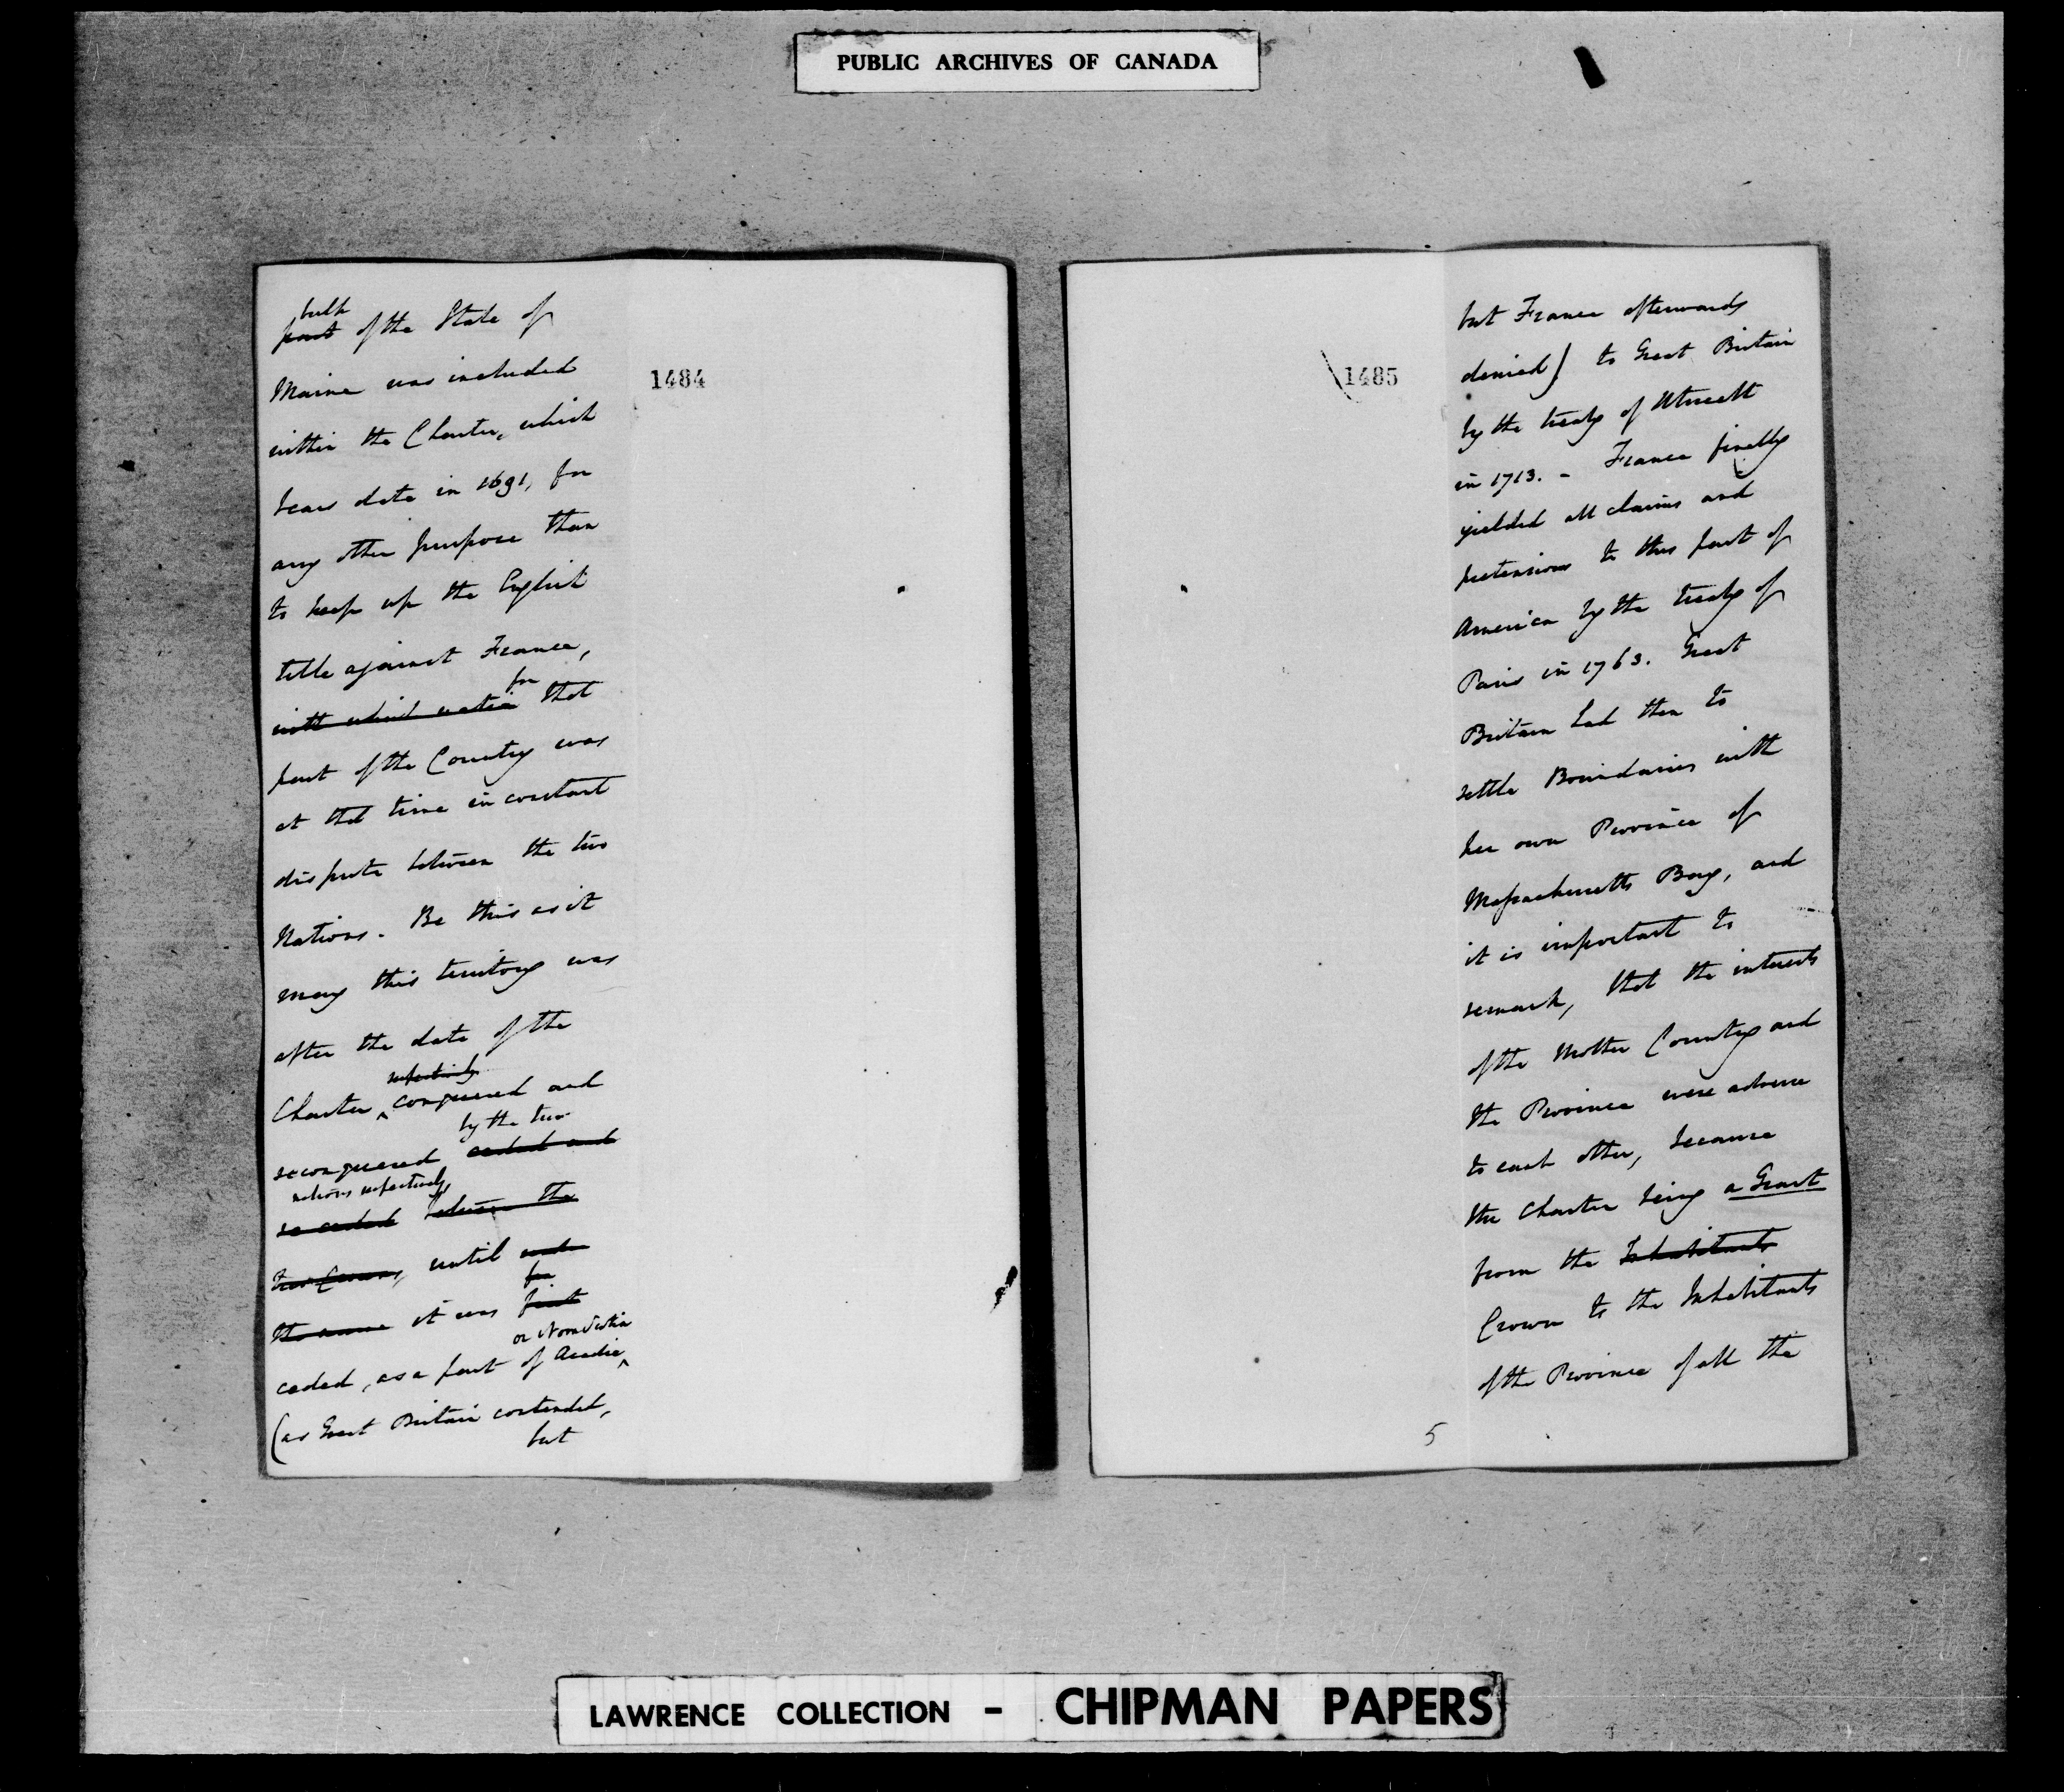 PUBLIC ARCHIVES OF CANADA
bulk
part of the State of
Maine was included
within the Charter, which
bears date in 1691, for
any other purpose than
to keep up the English
title against France,
for
with which nation that
part of the Country was
at that time in constant
dispute between the two
Nations. Be this as it
may this territory was
after the date of the
respectively
Charter, conquered and
by the two
reconquered ceded and
nations respectively,
re ceded between the
two Crowns, until
it was first
or Nova Scotia
ceded, as a part of Acadie
(as Great Britain contended,
but
1484
1485
but France afterwards
denied) to Great Britain
by the treaty of Utrecht
in 1713. - France finally
yielded all claims and
pretensions to this part of
America by the treaty of
Paris in 1763. Great
Britain had then to
settle Boundaries with
her own Province of
Massachusetts Bay, and
it is important to
remark, that the interests
of the Mother Country and
the Province were adverse
to each other, because
the Charter being a Grant
from the Inhabitants
Crown to the Inhabitants
of the Province of all the
5
LAWRENCE COLLECTION - CHIPMAN PAPERS